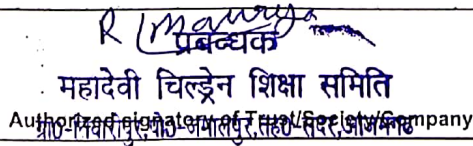 R Maurya
प्रबन्धक
महादेवी चिल्ड्रेन शिक्षा समिति
Authorized signatory of Trust/Society/Company
ग्रा0-तिवारीपुर,पो0-जमालपुर,तह0-सदर,आजमगढ